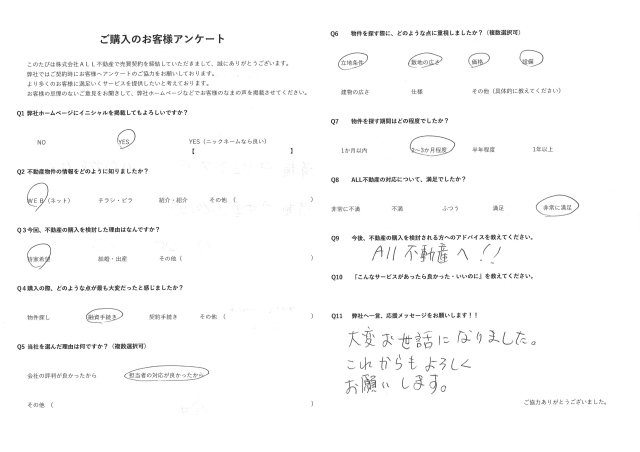 ご購入のお客様アンケート
このたびは株式会社ALL不動産で売買契約を締結していただきまして、誠にありがとうございます。
弊社ではご契約時にお客様へアンケートのご協力をお願いしております。
より多くのお客様に満足いくサービスを提供したいと考えております。
お客様の原理のないご意見をお聞きして、弊社ホームページなどでお客様のなまの声を掲載させてください。
Q1 弊社ホームページにイニシャルを掲載してもよろしいですか？
NO YES YES（ニックネームなら良い）
【 】
Q2 不動産物件の情報をどのように知りましたか？
WEB（ネット） チラシ・ビラ 紹介・紹介 その他 （ ）
Q3 今回、不動産の購入を検討した理由はなんですか？
持家希望 結婚・出産 その他（ ）
Q4 購入の際、どのような点が最も大変だったと感じましたか？
物件探し 融資手続き 契約手続き その他 （ ）
Q5 当社を選んだ理由は何ですか？（複数選択可）
会社の評判が良かったから 担当者の対応が良かったから
その他 （ ）
Q6 物件を探す際に、どのような点に重視しましたか？（複数選択可）
立地条件 敷地の広さ 価格 設備
建物の広さ 仕様 その他（具体的に教えてください）
Q7 物件を探す期間はどの程度でしたか？
1か月以内 2～3か月程度 半年程度 1年以上
Q8 ALL不動産の対応について、満足でしたか？
非常に不満 不満 ふつう 満足 非常に満足
Q9 今後、不動産の購入を検討される方へのアドバイスを教えてください。
All 不動産へ!!
Q10 「こんなサービスがあったら良かった・いいのに」を教えてください。
Q11 弊社へ一言、応援メッセージをお願いします！！
大変お世話になりました。
これからもよろしく
お願いします。
ご協力ありがとうございました。